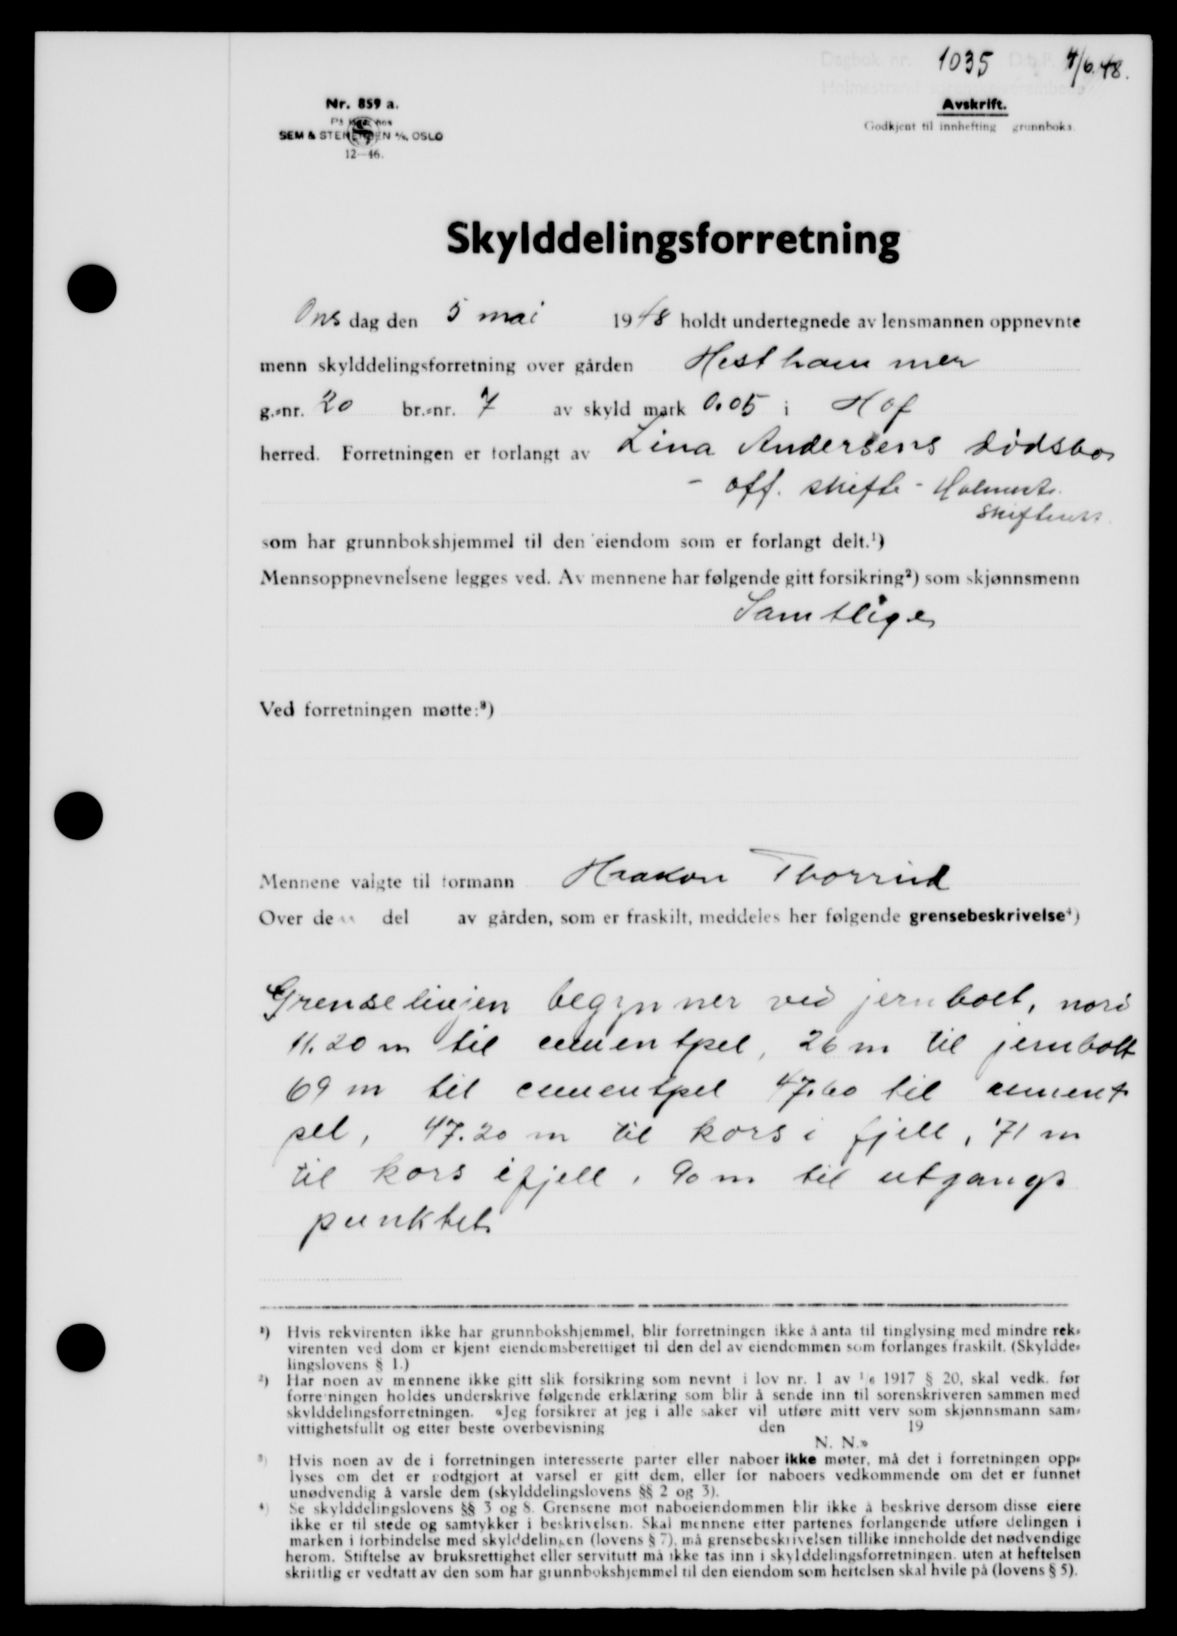 1035 4/6.48.
Nr. 859 a.
SEM & STENERSEN A/S, OSLO
12—46.
Avskrift.
Godkjent til innhefting grunnboka.
Skylddelingsforretning
Onsdag den 5 mai 1948 holdt undertegnede av lensmannen oppnevnte
menn skylddelingsforretning over gården Hesthammer
g.-nr. 20 br.-nr. 7 av skyld mark 0.05 i Hof
herred. Forretningen er forlangt av Lina Andersens dødsbo
- off. skifte - Holmestr.
som har grunnbokshjemmel til den eiendom som er forlangt delt.¹)
Mennsoppnevnelsene legges ved. Av mennene har følgende gitt forsikring²) som skjønnsmenn
Samtlige
Ved forretningen møtte:³)
Mennene valgte til formann Haakon Thorrud
Over de del av gården, som er fraskilt, meddeles her følgende grensebeskrivelse⁴)
Grenselinjen begynner ved jernbolt, nord
11.20 m til cementpel, 26 m til jernbolt
69 m til cementpel 47.60 til cement
pel, 47.20 m til kors i fjell, 71 m
til kors i fjell, 90 m til utgangs
punktet
¹) Hvis rekvirenten ikke har grunnbokshjemmel, blir forretningen ikke å anta til tinglysing med mindre rek-
virenten ved dom er kjent eiendomsberettiget til den del av eiendommen som forlanges fraskilt. (Skyldde-
lingslovens § 1.)
²) Har noen av mennene ikke gitt slik forsikring som nevnt i lov nr. 1 av ¹/₆ 1917 § 20, skal vedk. før
forretningen holdes underskrive følgende erklæring som blir å sende inn til sorenskriveren sammen med
skylddelingsforretningen. «Jeg forsikrer at jeg i alle saker vil utføre mitt verv som skjønnsmann sam-
vittighetsfullt og etter beste overbevisning den 19
N. N.»
³) Hvis noen av de i forretningen interesserte parter eller naboer ikke møter, må det i forretningen opp-
lyses om det er godtgjort at varsel er gitt dem, eller for naboers vedkommende om det er funnet
unødvendig å varsle dem (skylddelingslovens §§ 2 og 3).
⁴) Se skylddelingslovens §§ 3 og 8. Grensene mot naboeiendommen blir ikke å beskrive dersom disse eiere
ikke er til stede og samtykker i beskrivelsen. Skal mennene etter partenes forlangende utføre delingen i
marken i forbindelse med skylddelingen (lovens § 7), må grensebeskrivelsen tillike inneholde det nødvendige
herom. Stiftelse av bruksrettighet eller servitutt må ikke tas inn i skylddelingsforretningen, uten at heftelsen
skriftlig er vedtatt av den som har grunnbokshjemmel til den eiendom som heftelsen skal hvile på (lovens § 5).